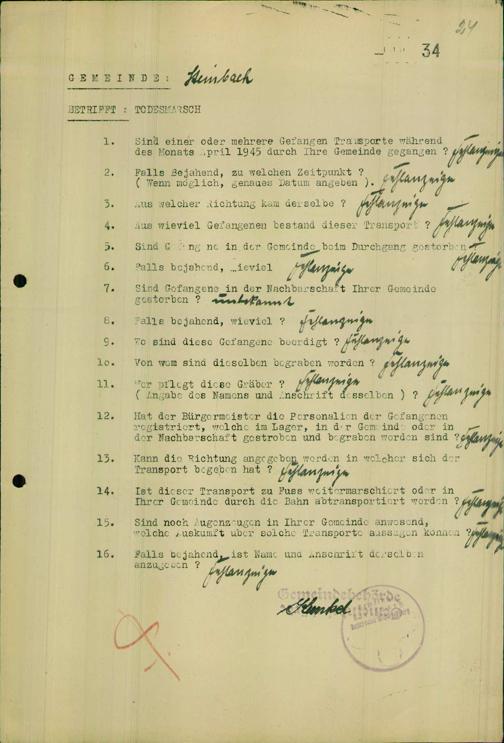 24
34
GEMEINDE: Steinbach
BETRIFFT : TODESMARSCH
1. Sind einer oder mehrere Gefangen Transporte während
des Monats April 1945 durch Ihre Gemeinde gegangen ? Fehlanzeige
2. Falls Bejahend, zu welchen Zeitpunkt ?
( Wenn möglich, genaues Datum angeben ). Fehlanzeige
3. Aus welcher Richtung kam derselbe ? Fehlanzeige
4. Aus wieviel Gefangenen bestand dieser Transport ? Fehlanzeige
5. Sind Gefangene in der Gemeinde beim Durchgang gestorben Fehlanzeige
6. Falls bejahend, wieviel Fehlanzeige
7. Sind Gefangene in der Nachbarschaft Ihrer Gemeinde
gestorben ? unbekannt
8. Falls bejahend, wieviel ? Fehlanzeige
9. Wo sind diese Gefangene beerdigt ? Fehlanzeige
10. Von wem sind dieselben begraben worden ? Fehlanzeige
11. Wer pflegt diese Gräber ? Fehlanzeige
( Angabe des Namens und Anschrift desselben ) ? Fehlanzeige
12. Hat der Bürgermeister die Personalien der Gefangenen
registriert, welche im Lager, in der Gemeinde oder in
der Nachbarschaft gestroben und begraben worden sind ? Fehlanzeige
13. Kann die Richtung angegeben werden in welcher sich der
Transport begeben hat ? Fehlanzeige
14. Ist dieser Transport zu Fuss weitermarschiert oder in
Ihrer Gemeinde durch die Bahn abtransportiert worden ? Fehlanzeige
15. Sind noch Augenzeugen in Ihrer Gemeinde anwesend,
welche Auskunft über solche Transporte aussagen können ? Fehlanzeige
16. Falls bejahend, ist Name und Anschrift derselben
anzugeben ? Fehlanzeige
Gemeindebehörde